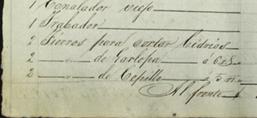 1 Canalador viejo
1 Grabador
2 Fierros para cortar Cidrios
2 — de Garlopa — á 6
2 — de Cepillo — á 5
Al frente